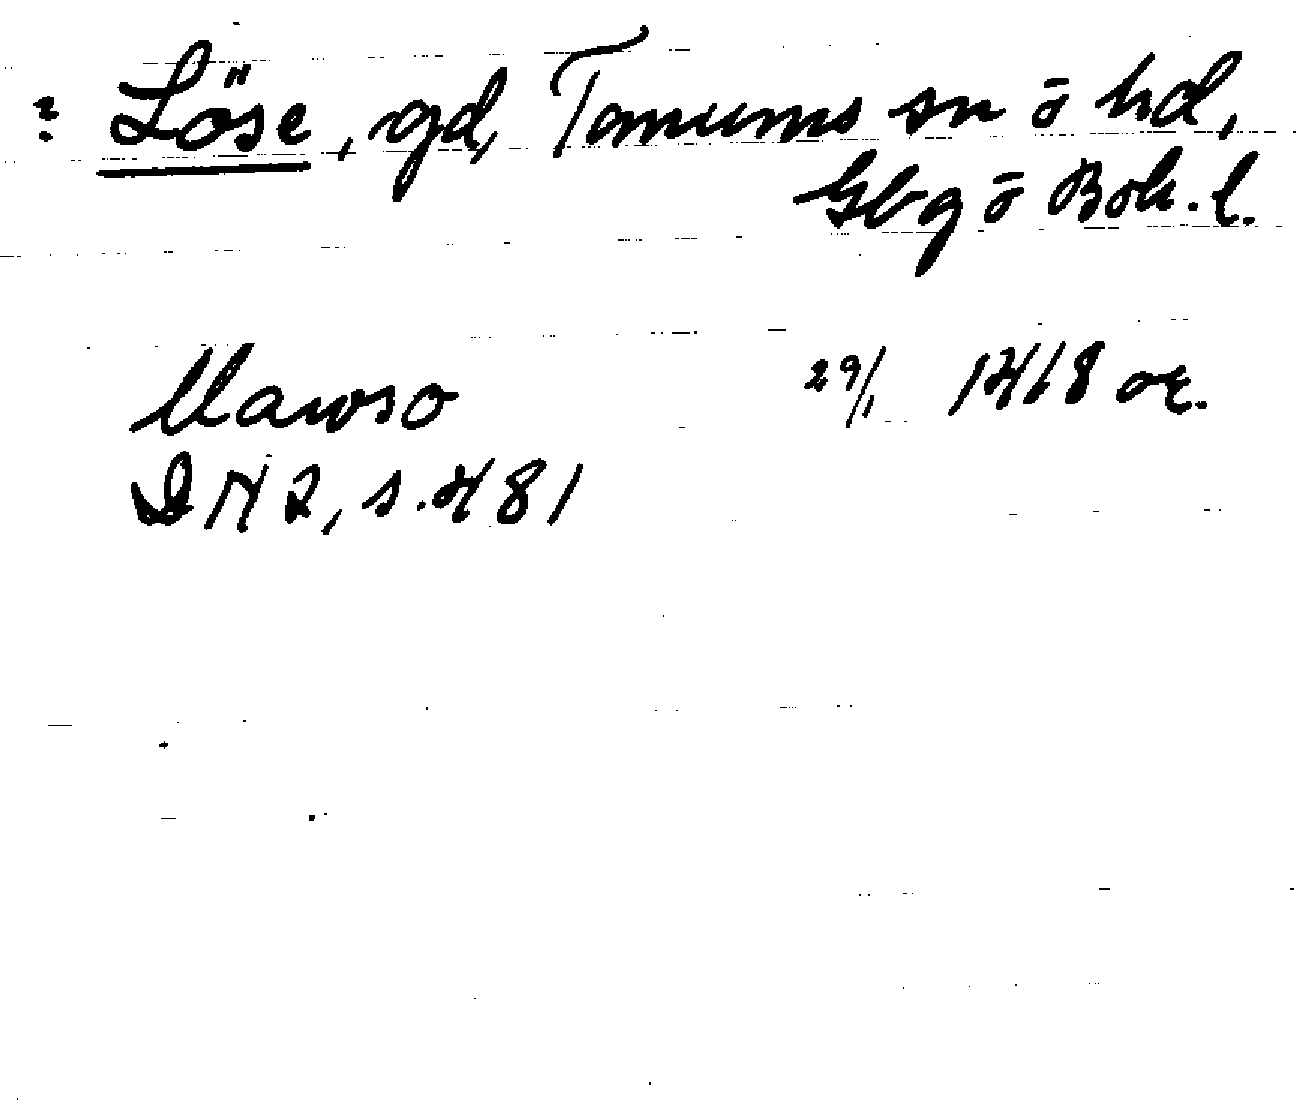 ? Löse, gd, Tanums sn ō hd,
Gbg ō Boh. l.
29/1 1418 or.
DN 2, s. 481